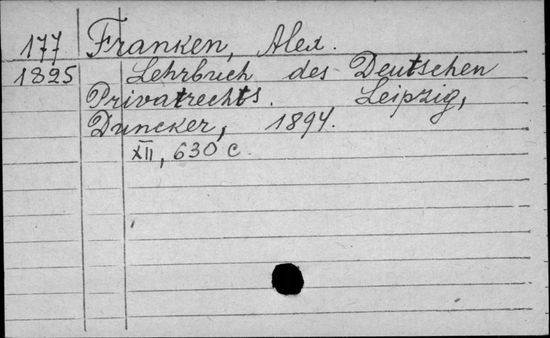 177 Franken, Alex.
1825 Lehrbuch des Deutschen
Privatrechts. Leipzig,
Duncker, 1894.
XII, 630 c.